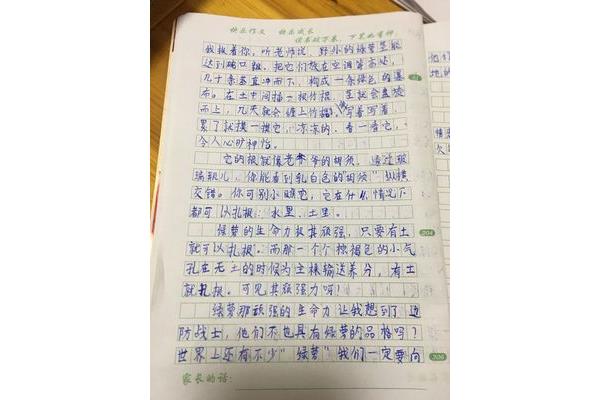 快乐作文 快乐成长
读书破万卷,下笔如有神
我报着你,听老师说,野外的绿萝茎能
达到碗口粗,把它们放在空调等高处,
几十条茎直冲而下,构成一条绿色的瀑
布。在土中间插一根竹棍,茎就会盘旋
而上,几天就会缠上竹棍,写着写着,
累了就摸一摸它,凉凉的,看一看它,
令人心旷神怡。
它的根就像老爷爷的胡须,透过玻
璃瓶儿,你能看到乳白色的"胡须"纵横
交错。你可别小瞧它,它在什么情况下
都可以扎根:水里、土里。
绿萝的生命力极其顽强,只要有土
就可以扎根,而那一个个棕褐色的小气
孔在无土的时候为主株输送养分,有土
就扎根。可见其顽强力呀!
绿萝那顽强的生命力让我想到了边
防战士,他们不也具有绿萝的品格吗?
世界上还有不少"绿萝"我们一定要向
204
206
家长的话:
他们
地的